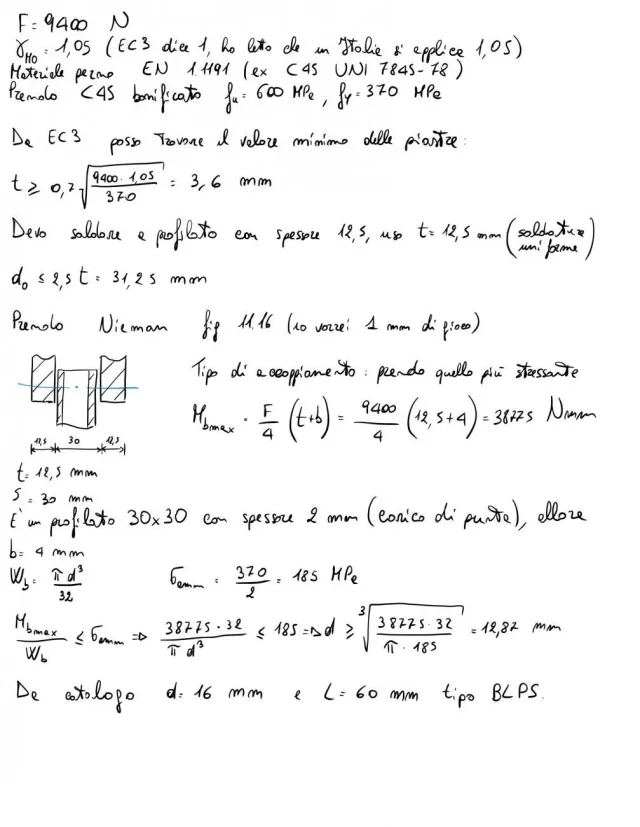 F = 9400 N
γM0 = 1,05 (EC3 dice 1, ho letto che in Italia si applica 1,05)
Materiale perno EN 1.1191 (ex C45 UNI 7845-78)
Prendo C45 bonificato fu = 600 MPa, fy = 370 MPa
Da EC3 posso trovare il valore minimo delle piastre:
t ≥ 0,7 √(9400 · 1,05 / 370) = 3,6 mm
Devo saldare a profilato con spessore 12,5, uso t = 12,5 mm (saldatura uniforme)
d0 ≤ 2,5 t = 31,25 mm
Prendo Nieman fig 11.16 (io vorrei 1 mm di gioco)
Tipo di accoppiamento: prendo quello più stressante
Mbmax = F/4 (t+b) = 9400/4 (12,5+4) = 38775 Nmm
12,5 30 12,5
t = 12,5 mm
S = 30 mm
E' un profilato 30x30 con spessore 2 mm (carico di punta), allora
b = 4 mm
Wb = πd³/32 σamm = 370/2 = 185 MPa
Mbmax/Wb ≤ σamm ⇒ 38775 · 32 / πd³ ≤ 185 ⇒ d ≥ ³√(38775 · 32 / π · 185) = 12,87 mm
Da catalogo d = 16 mm e L = 60 mm tipo BLPS.